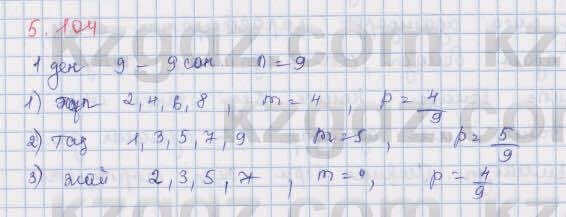 5.104
1 ден 9 - 9 сан n = 9
1) жұп 2, 4, 6, 8, m = 4, p = 4/9
2) тақ 1, 3, 5, 7, 9 m = 5, p = 5/9
3) жай 2, 3, 5, 7, m = 4, p = 4/9
kzgdz.com kz